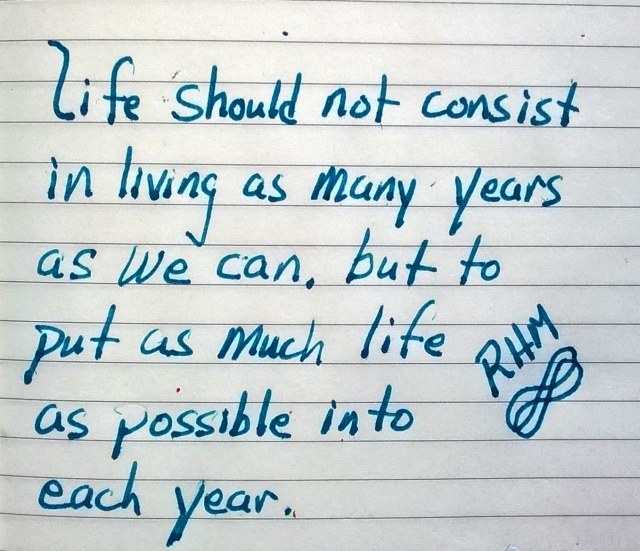 Life should not consist
in living as many years
as we can, but to
put as much life
as possible into
each year.
RHM